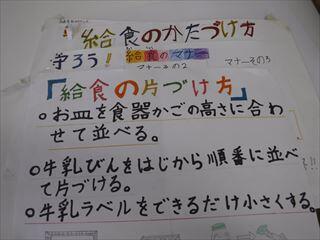 給食のかたづけ方
守ろう！給食のマナー
マナーその2
マナーその3
「給食の片づけ方」
○お皿を食器かごの高さに合わ
せて並べる。
○牛乳びんをはじから順番に並べ
て片づける。
○牛乳ラベルをできるだけ小さくする。